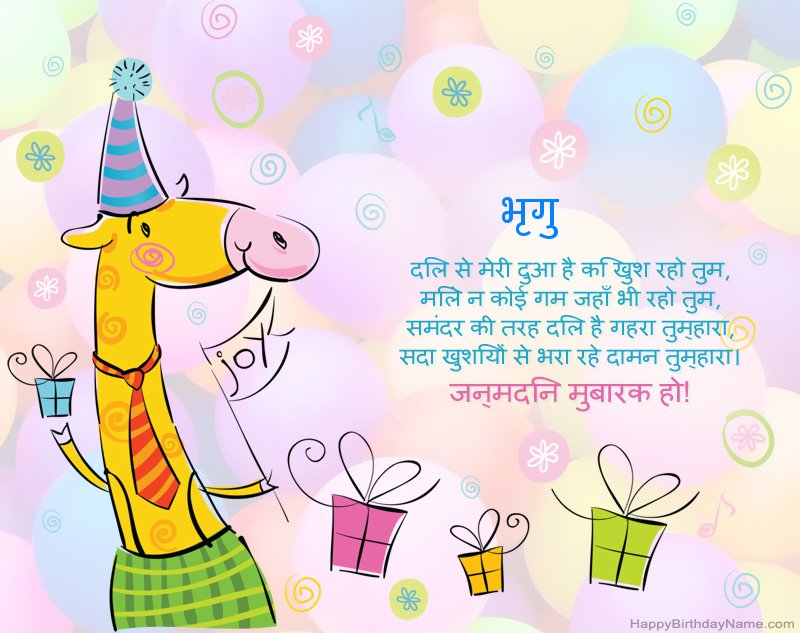 भृगु
दलि से मेरी दुआ है कि खुश रहो तुम,
मलि न कोई गम जहाँ भी रहो तुम,
समंदर की तरह दलि है गहरा तुम्हारा,
सदा खुशयिों से भरा रहे दामन तुम्हारा।
जन्मदनि मुबारक हो!
joy
HappyBirthdayName.com